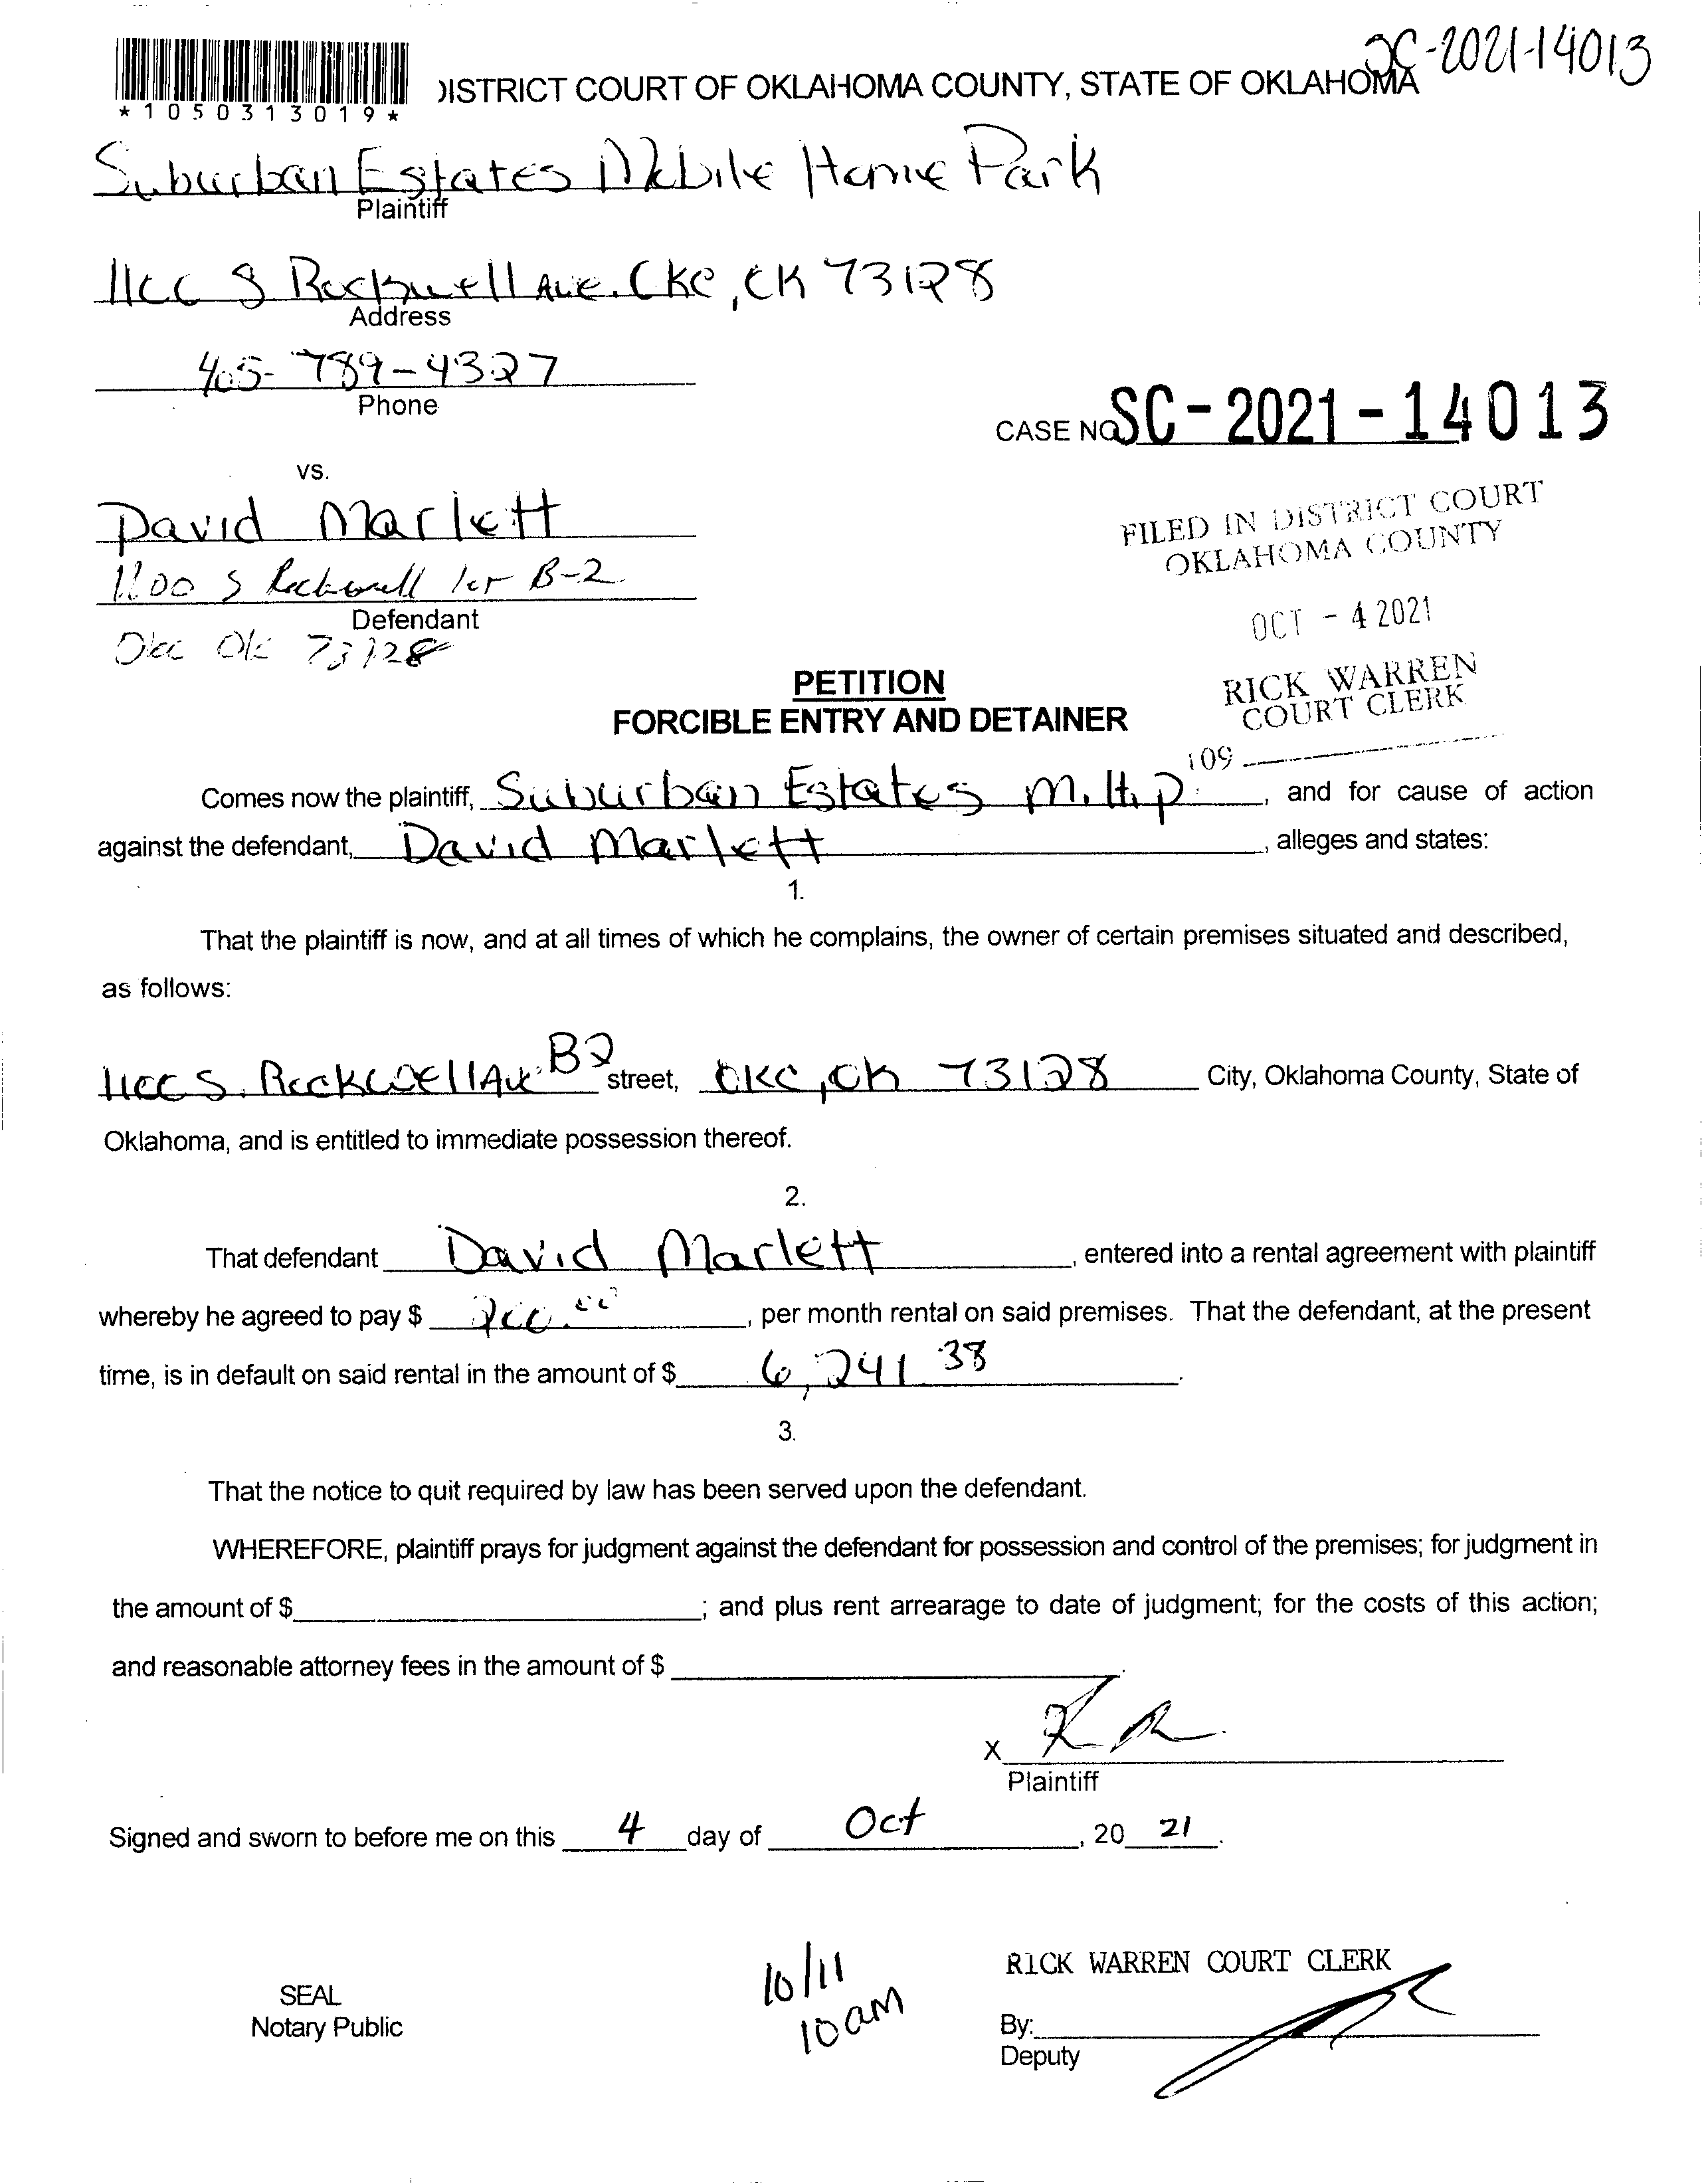 SC-2021-14013
*1050313019*
DISTRICT COURT OF OKLAHOMA COUNTY, STATE OF OKLAHOMA
Suburban Estates Mobile Home Park
Plaintiff
1100 S Rockwell Ave. OKC, OK 73128
Address
405-789-4327
Phone
CASE NO. SC-2021-14013
vs.
David Marlett
1100 S Rockwell lot B-2
Defendant
Okc Ok 73128
FILED IN DISTRICT COURT
OKLAHOMA COUNTY
OCT - 4 2021
RICK WARREN
COURT CLERK
109
PETITION
FORCIBLE ENTRY AND DETAINER
Comes now the plaintiff, Suburban Estates M.H.P., and for cause of action
against the defendant, David Marlett, alleges and states:
1.
That the plaintiff is now, and at all times of which he complains, the owner of certain premises situated and described,
as follows:
1100 S. Rockwell Ave B2 street, OKC, OK 73128 City, Oklahoma County, State of
Oklahoma, and is entitled to immediate possession thereof.
2.
That defendant David Marlett, entered into a rental agreement with plaintiff
whereby he agreed to pay $ 200.00, per month rental on said premises. That the defendant, at the present
time, is in default on said rental in the amount of $ 6,241.38.
3.
That the notice to quit required by law has been served upon the defendant.
WHEREFORE, plaintiff prays for judgment against the defendant for possession and control of the premises; for judgment in
the amount of $; and plus rent arrearage to date of judgment; for the costs of this action;
and reasonable attorney fees in the amount of $
X
Plaintiff
Signed and sworn to before me on this 4 day of Oct, 20 21.
SEAL
Notary Public
10/11
10am
RICK WARREN COURT CLERK
By:
Deputy